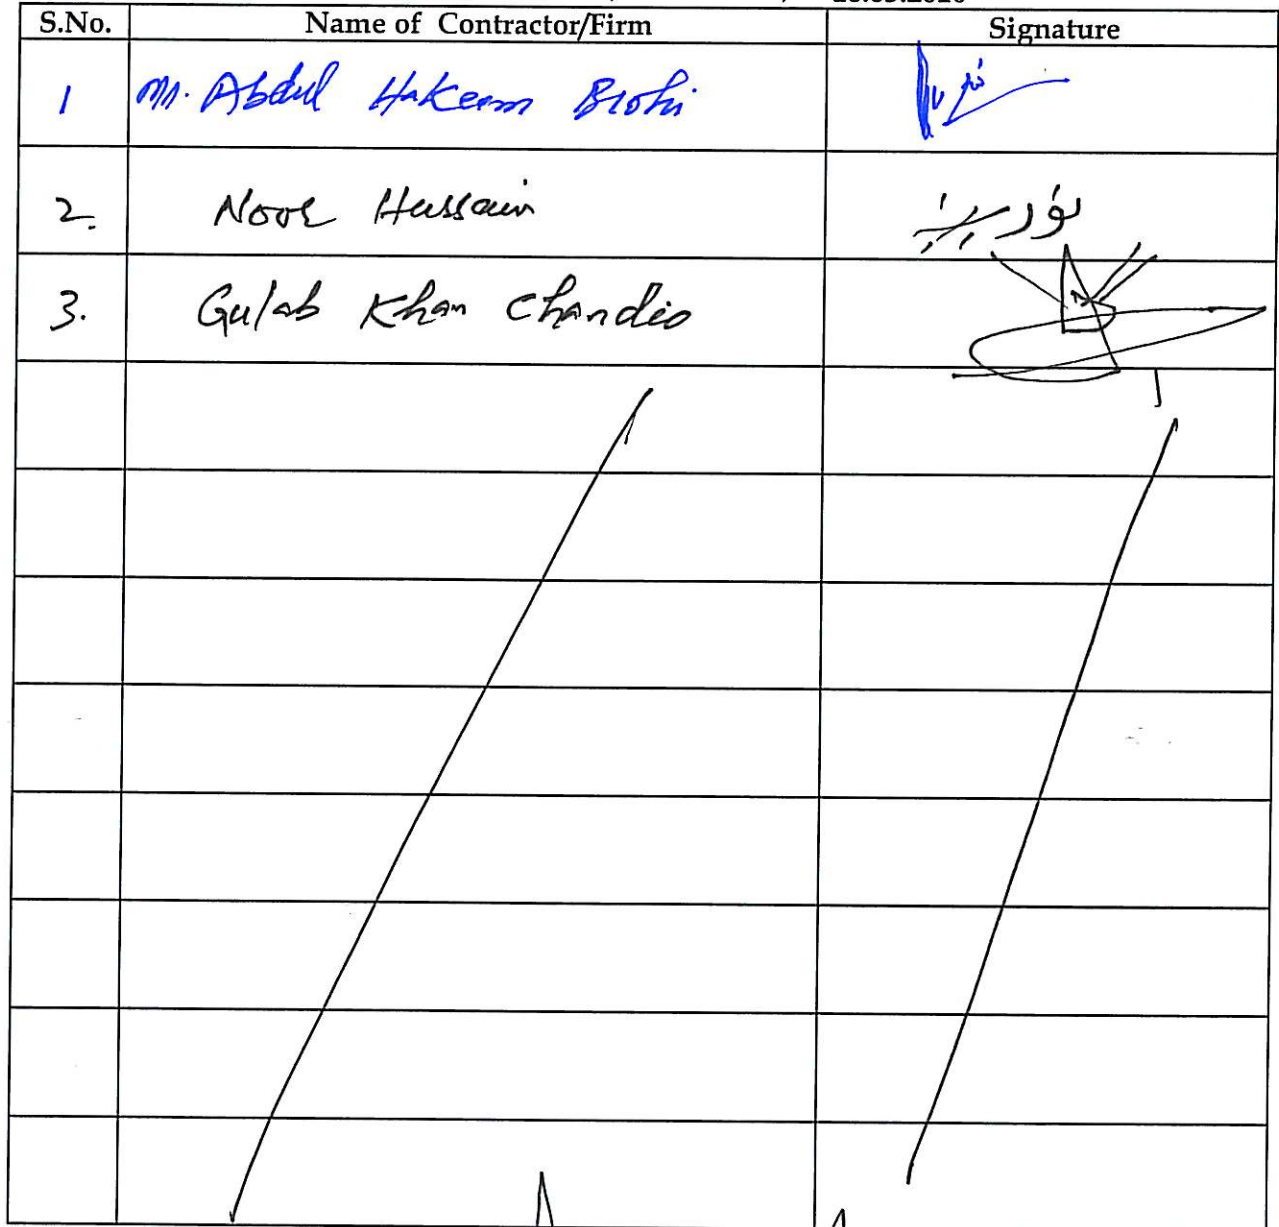 S.No. Name of Contractor/Firm Signature
1 Mr. Abdul Hakeem Brohi
2. Noor Hussain
3. Gulab Khan Chandio